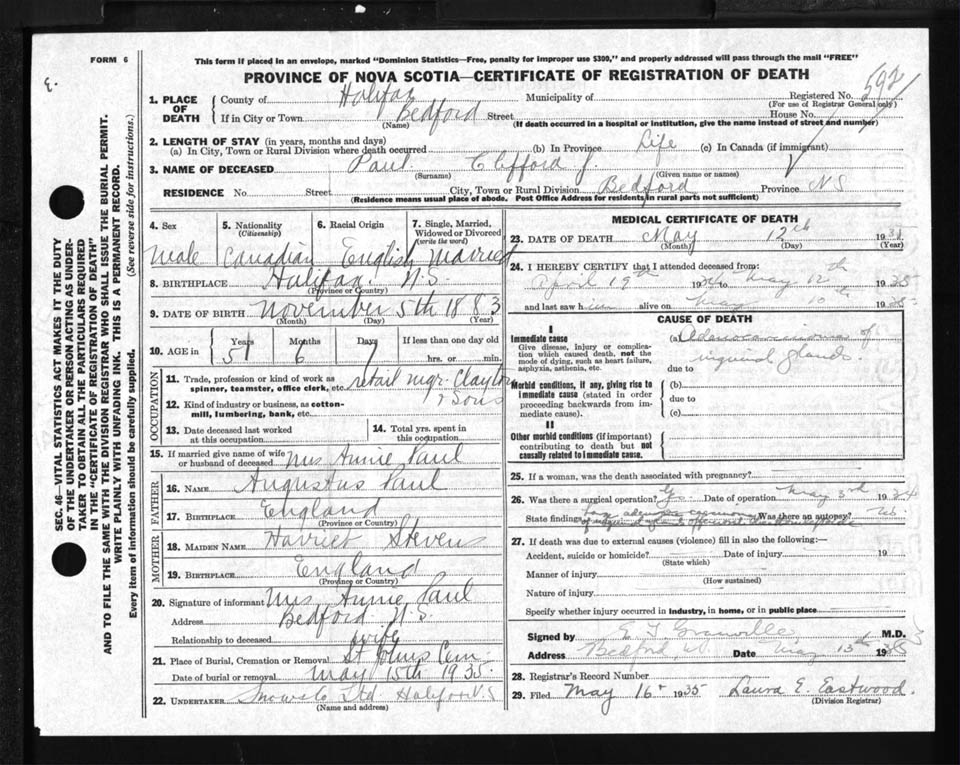 FORM 6
E.
This form if placed in an envelope, marked "Dominion Statistics—Free, penalty for improper use $300," and properly addressed will pass through the mail "FREE"
PROVINCE OF NOVA SCOTIA—CERTIFICATE OF REGISTRATION OF DEATH
SEC. 46—VITAL STATISTICS ACT MAKES IT THE DUTY
OF THE UNDERTAKER OR PERSON ACTING AS UNDER-
TAKER TO OBTAIN ALL THE PARTICULARS REQUIRED
IN THE "CERTIFICATE OF REGISTRATION OF DEATH"
AND TO FILE THE SAME WITH THE DIVISION REGISTRAR WHO SHALL ISSUE THE BURIAL PERMIT.
WRITE PLAINLY WITH UNFADING INK. THIS IS A PERMANENT RECORD.
Every item of information should be carefully supplied. (See reverse side for instructions.)
1. PLACE OF DEATH County of Halifax Municipality of Registered No. 592
(For use of Registrar General only)
If in City or Town Bedford Street House No.
(Name) (If death occurred in a hospital or institution, give the name instead of street and number)
2. LENGTH OF STAY (in years, months and days)
(a) In City, Town or Rural Division where death occurred (b) In Province Life (c) In Canada (if immigrant)
3. NAME OF DECEASED Paul Clifford J.
(Surname) (Given name or names)
RESIDENCE No Street City, Town or Rural Division Bedford Province NS
(Residence means usual place of abode. Post Office Address for residents in rural parts not sufficient)
4. Sex 5. Nationality (Citizenship) 6. Racial Origin 7. Single, Married, Widowed or Divorced (write the word)
Male Canadian English Married
8. BIRTHPLACE Halifax N.S.
(Province or Country)
9. DATE OF BIRTH November 5th 1883
(Month) (Day) (Year)
10. AGE in Years Months Days If less than one day old
51 6 7 hrs. or min.
OCCUPATION
11. Trade, profession or kind of work as spinner, teamster, office clerk, etc. retail mgr. Clayton & Sons
12. Kind of industry or business, as cotton-mill, lumbering, bank, etc.
13. Date deceased last worked at this occupation
14. Total yrs. spent in this occupation
15. If married give name of wife or husband of deceased Mrs Annie Paul
FATHER
16. NAME Augustus Paul
17. BIRTHPLACE England
(Province or Country)
MOTHER
18. MAIDEN NAME Harriet Stevens
19. BIRTHPLACE England
(Province or Country)
20. Signature of informant Mrs Annie Paul
Address Bedford N.S.
Relationship to deceased wife
21. Place of Burial, Cremation or Removal St Johns Cem.
Date of burial or removal May 15th 1935
22. UNDERTAKER Snow & Co Ltd Halifax N.S
(Name and address)
MEDICAL CERTIFICATE OF DEATH
23. DATE OF DEATH May 12th 193
(Month) (Day) (Year)
24. I HEREBY CERTIFY that I attended deceased from:
April 19th 19 to May 12th 1935
and last saw him alive on May 10th 1935
CAUSE OF DEATH
I
Immediate cause
Give disease, injury or complication which caused death, not the mode of dying, such as heart failure, asphyxia, asthenia, etc.
(a) Adenocarcinoma of inguinal glands
due to
Morbid conditions, if any, giving rise to immediate cause (stated in order proceeding backwards from immediate cause).
(b)
due to
(c)
II
Other morbid conditions (if important) contributing to death but not causally related to immediate cause.
25. If a woman, was the death associated with pregnancy?
26. Was there a surgical operation? Yes. Date of operation May 3rd 1934
State findings Was there an autopsy? No.
27. If death was due to external causes (violence) fill in also the following:—
Accident, suicide or homicide? Date of injury 19
(State which)
Manner of injury
(How sustained)
Nature of injury
Specify whether injury occurred in industry, in home, or in public place
Signed by E T Granville M.D.
Address Bedford, N. Date May 13th 1935
28. Registrar's Record Number
29. Filed May 16th 1935 Laura E. Eastwood.
(Division Registrar)